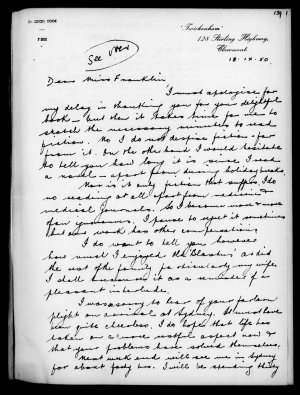 Dr LESLIE COOK
139 1
"Twickenham"
128 Stirling Highway,
Claremont
18·IX·50.
See over
Dear Miss Franklin
I must apologise for
my delay in thanking you for your delightful
book - but then it takes time for me to
snatch the necessary minutes to read
fiction. No I do not despise fiction - far
from it. On the other hand I would hesitate
to tell you how long it is since I read
a novel - apart from during holiday breaks.
Nor is it only fiction that suffers I do
no reading at all apart from medicine &
medical journals. So I become more & more
of an ignoramus. I pause to regret it sometimes
but work has other compensations
I do want to tell you however
how much I enjoyed the Blastus as did
the rest of the family particularly my wife.
I shall treasure it as a reminder of a
pleasant interlude.
I was sorry to hear of your forlorn
plight on arrival at Sydney. It must have
been quite cheerless. I do hope that life has
taken on a more restful aspect now &
that your problems have solved themselves.
Next week end will see me in Sydney
for about forty hrs. I will be spending thirty